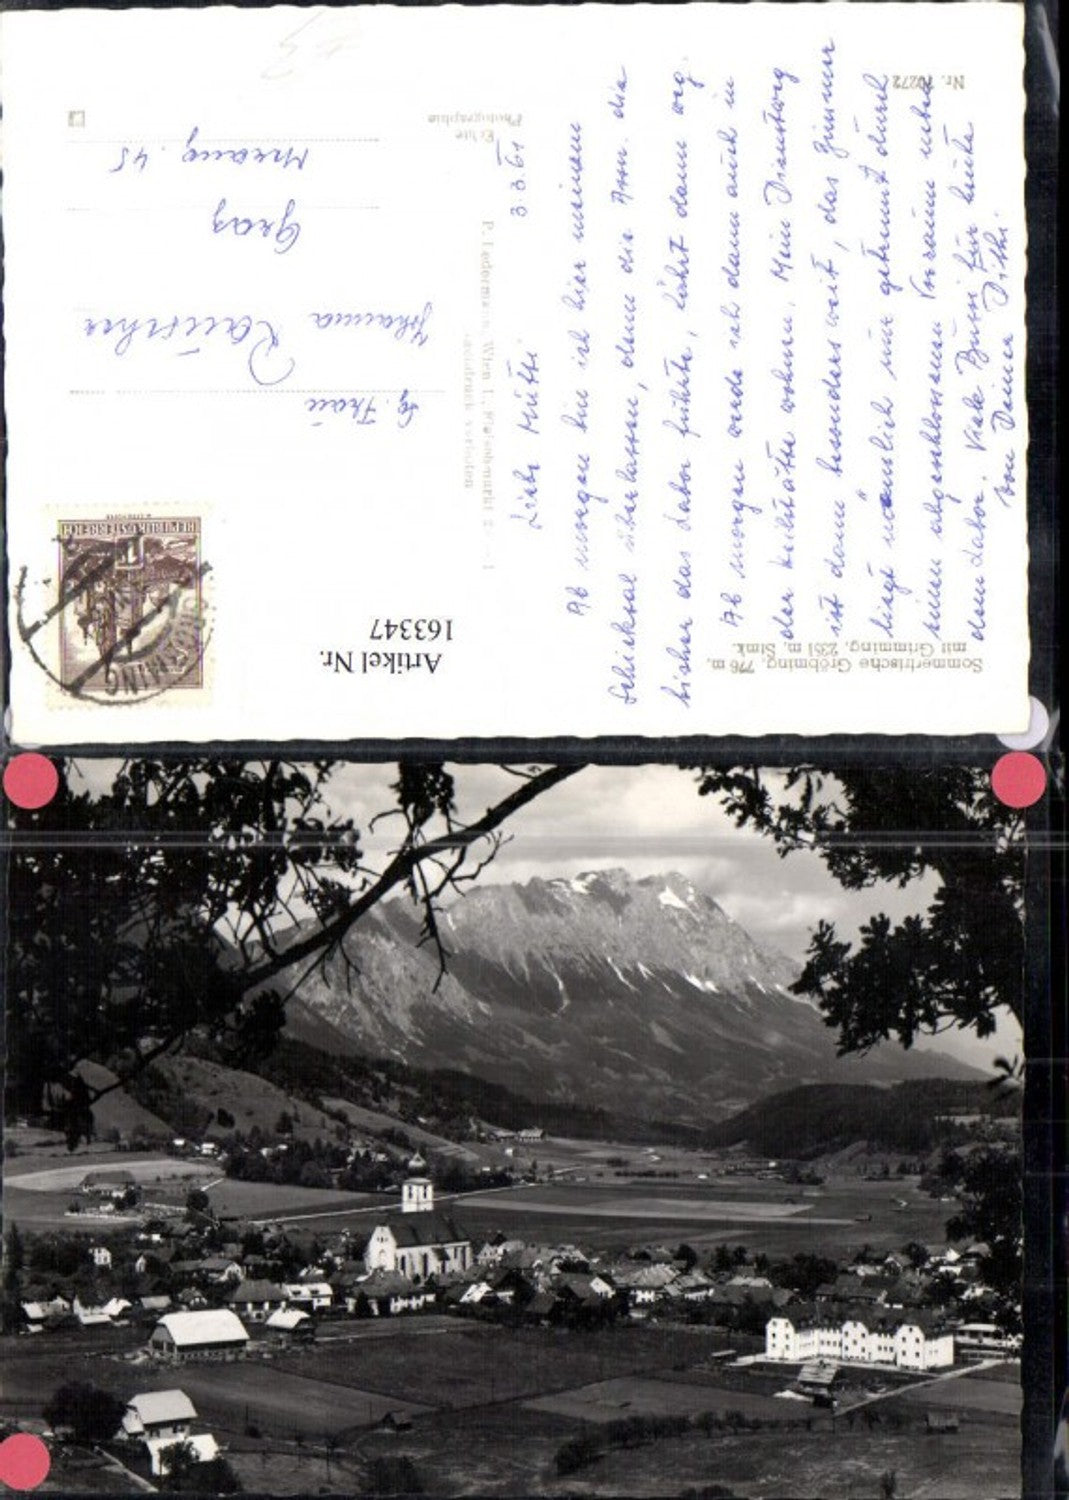 Nr. 10272
Sommerfrische Gröbming, 776 m,
mit Grimming, 2351 m, Stmk.
3.3.61
Liebe Mutti
Ab morgen bin ich hier meinem
Schicksal überlassen, denn die Assn. die
bisher das Labor führte, fährt dann weg.
Ab morgen werde ich dann auch in
der Heilstätte wohnen. Mein Dienstweg
ist dann besonders weit, das Zimmer
liegt nämlich nur getrennt durch
einen abgeschlossenen Vorraum neben
dem Labor. Viele Bussi für heute
von Deiner Dithi.
Echte
Photographie
P. Ledermann, Wien I., Fleischmarkt
verboten
Sg. Frau
Johanna Rauscher
Graz
45
REPUBLIK ÖSTERREICH
GRÖBMING
Artikel Nr.
163347